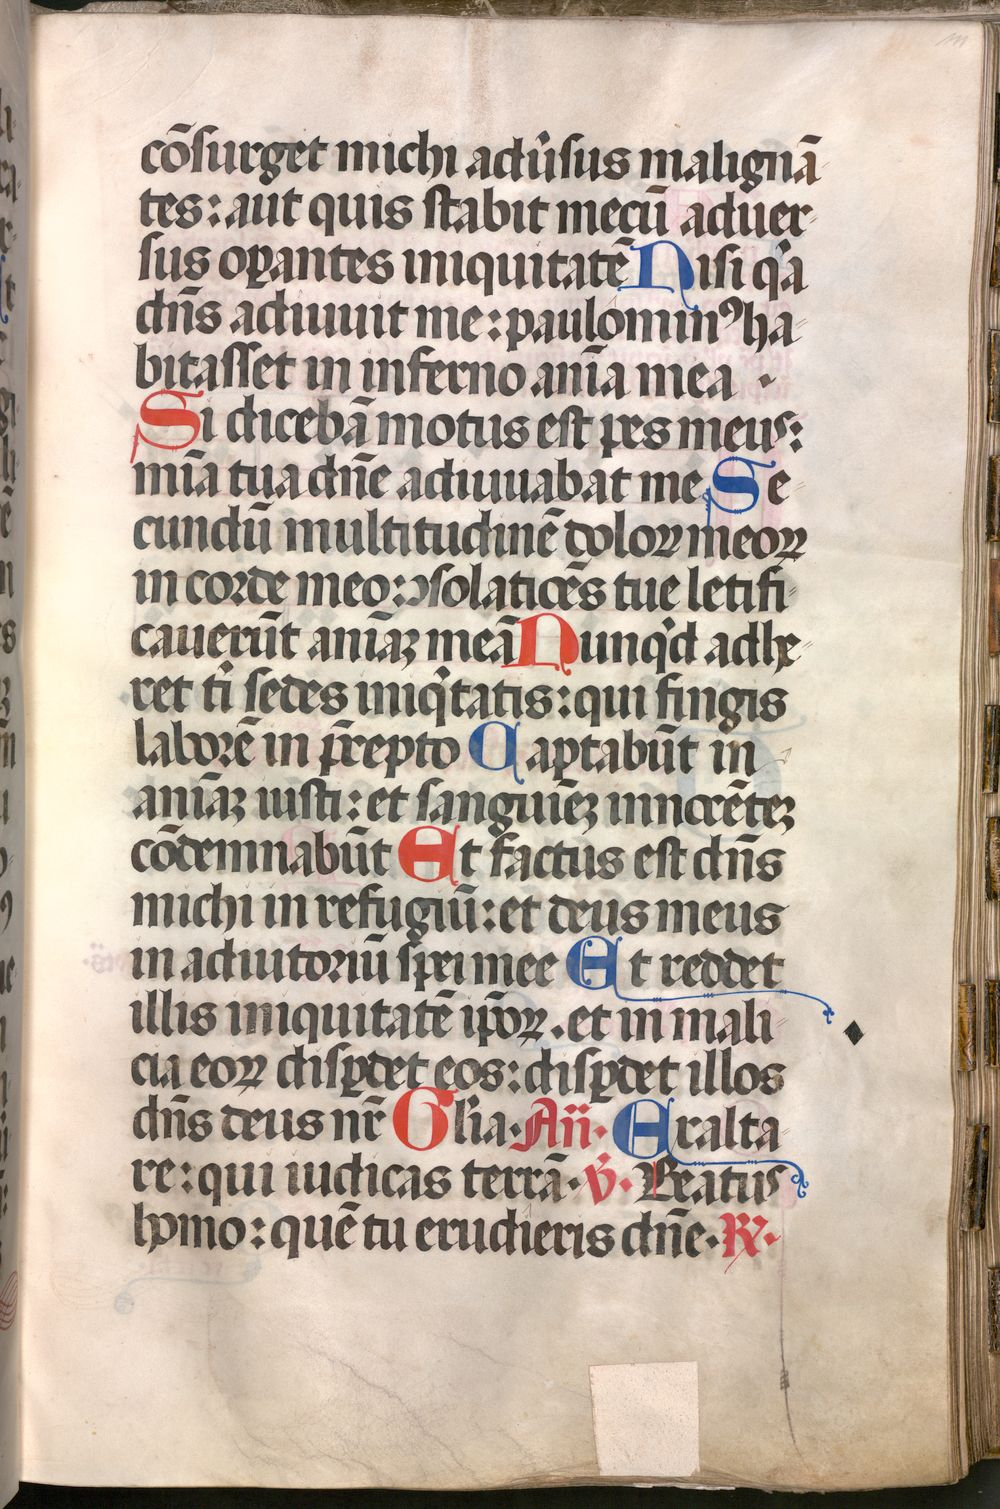 cōsurget michi adūsus malignā
tes: aut quis stabit mecū aduer-
sus oꝑantes iniquitatē Nisi qͥa
dn̄s adiuuit me: paulomin⁹ ha-
bitasset in inferno anīa mea ·
Si dicebā motus est pes meus:
mīa tua dn̄e adiuuabat me Se-
cundū multitudinē doloꝝ meoꝝ
in corde meo: ꝯsolatiōes tue letifi-
cauerūt anīaꝫ meā Nunqͥd adhe-
ret tͥ sedes iniqͥtatis: qui fingis
laborē in p̄cepto Captabūt in
anīaꝫ iusti: et sanguinēꝫ innocētēꝫ
cōdemnabūt Et factus est dn̄s
michi in refugiū: et deus meus
in adiutoriū spei mee Et reddet
illis iniquitatē ip̄oꝝ. et in mali
cia eoꝝ disꝑdet eos: disꝑdet illos
dn̄s deus nr̄ Gl̄ia· An̄· Exalta
re: qui iudicas terrā· V̄· Beatus
homo: quē tu erudieris dn̄e· R̄·